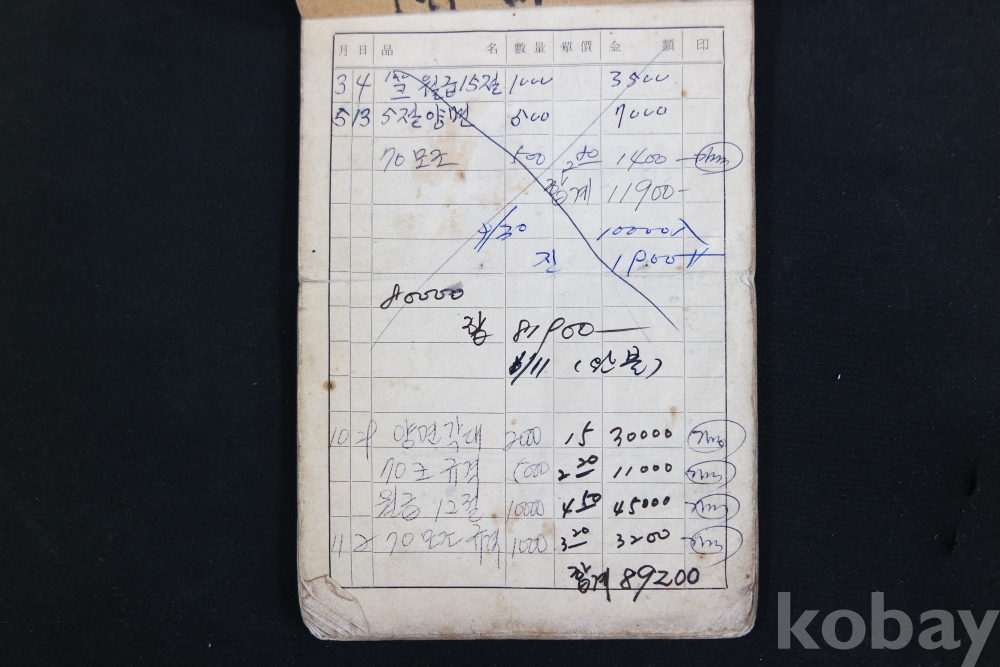 月 日 品 名 數量 單價 金 額 印
3 4 월급15절 1000 3500
5 13 5절양면 500 7000
70모조 500 2 80 1400
합계 11900-
10000
잔 1900
80000
81900
6/11 (완불)
10 29 양면각대 2000 15 30000
70조 규격 5000 2 20 11000
월급 12절 10000 4 50 45000
11 2 70모조 규격 1000 3 20 3200
합계 89200
kobay